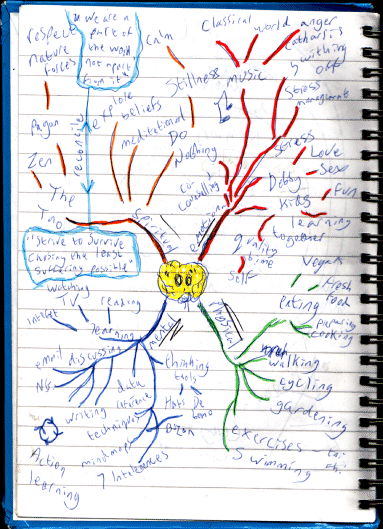 "We are a
part of
the world
not apart
from it"
respect
nature
forces
Calm
Pagan
Zen
The
Tao
reconcile
explore
beliefs
meditational
Do
Nothing
Stillness
spiritual
"strive to survive
causing the least
suffering possible"
Classical
world
anger
catharsis
switching
off
music
stress
management
stress
Love
Sex
Fun
Debby
Kids
learning
together
quality
time
Self
co-
counselling
emotional
physical
Vegan
fresh
food
eating
preparing
cooking
walking
cycling
gardening
exercises - tai
chi
Swimming
mental
watching
TV
reading
internet
learning
email
discussing
NGs
writing
data
techniques
mindmaps
7 Intelligences
thinking
tools
Hats
De
Bono
Buzan
Action
learning